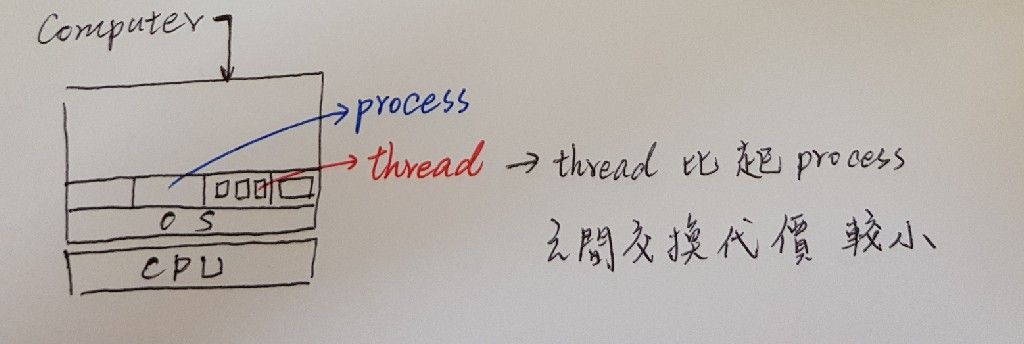 Computer
process
thread → thread 比起 process
之間交換代價 較小
OS
CPU